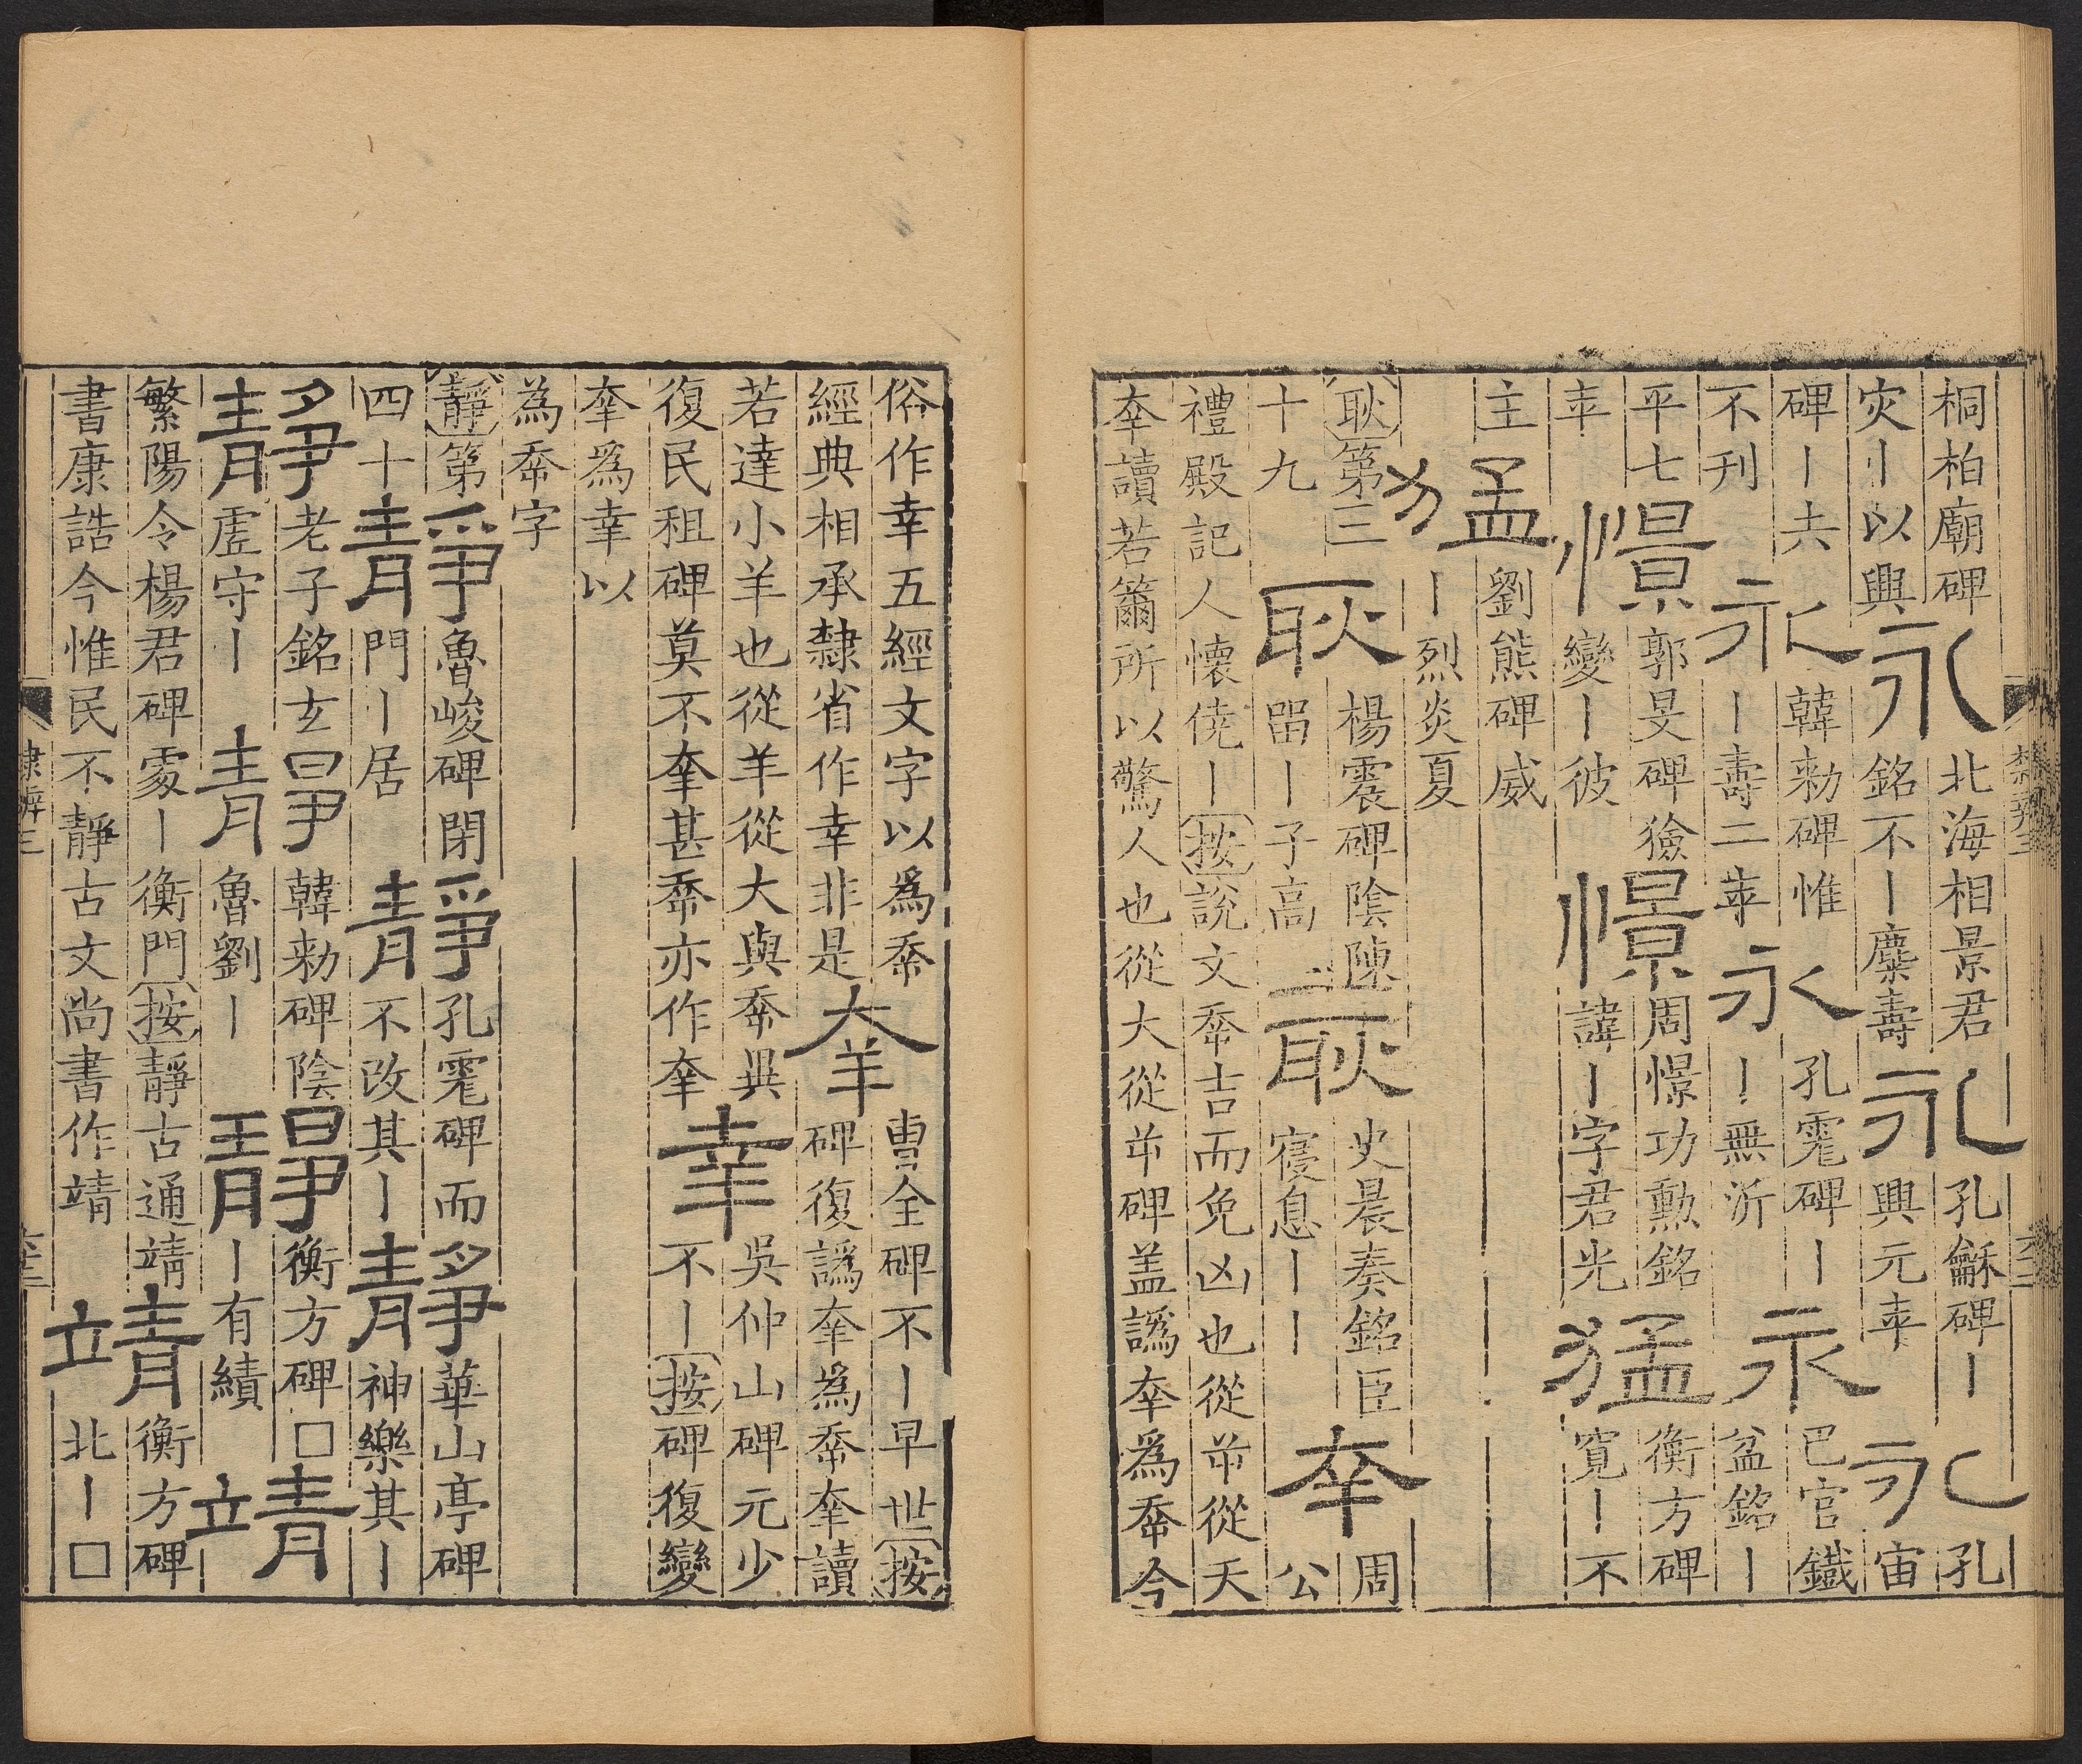 桐柏廟碑
灾丨以興
永
北海相景君
銘不丨麋壽
永
孔龢碑丨
興元年
永
孔
宙
碑丨夫
不刊
永
韓勑碑惟
丨壽二年
永
孔彪碑丨
丨無沂
永
巴官鐵
盆銘丨
平七
年
憬
郭旻碑獫
變丨彼
憬
周憬功勲銘
諱丨字君光
猛
衡方碑
寬丨不
主
猛
劉熊碑威
丨烈炎夏
耿第三
十九
耿
楊震碑陰陳
畱丨子高
耿
史晨奏銘臣
寑息丨丨
㚔
周
公
禮殿記人懷僥丨按說文𠂷吉而免凶也從屰從夭
㚔讀若籋所以驚人也從大從𢆉碑盖譌㚔爲𠂷今
俗作幸五經文字以爲𠂷
經典相承隸省作幸非是
羍
曹全碑不丨早世按
碑復譌羍爲𠂷羍讀
若達小羊也從羊從大與𠂷異
復民租碑莫不羍甚𠂷亦作羍
幸
吳仲山碑元少
不丨按碑復變
羍爲幸以
為𠂷字
靜第
四十
靜
魯峻碑閉
門丨居
靜
孔彪碑而
不改其丨
靜
華山亭碑
神樂其丨
靜
老子銘玄
虛守丨
靜
韓勑碑陰
魯劉丨
靜
衡方碑□
丨有績
靖
繁陽令楊君碑處丨衡門按靜古通靖
書康誥今惟民不靜古文尚書作靖
靖
衡方碑
北丨□
隸辨三